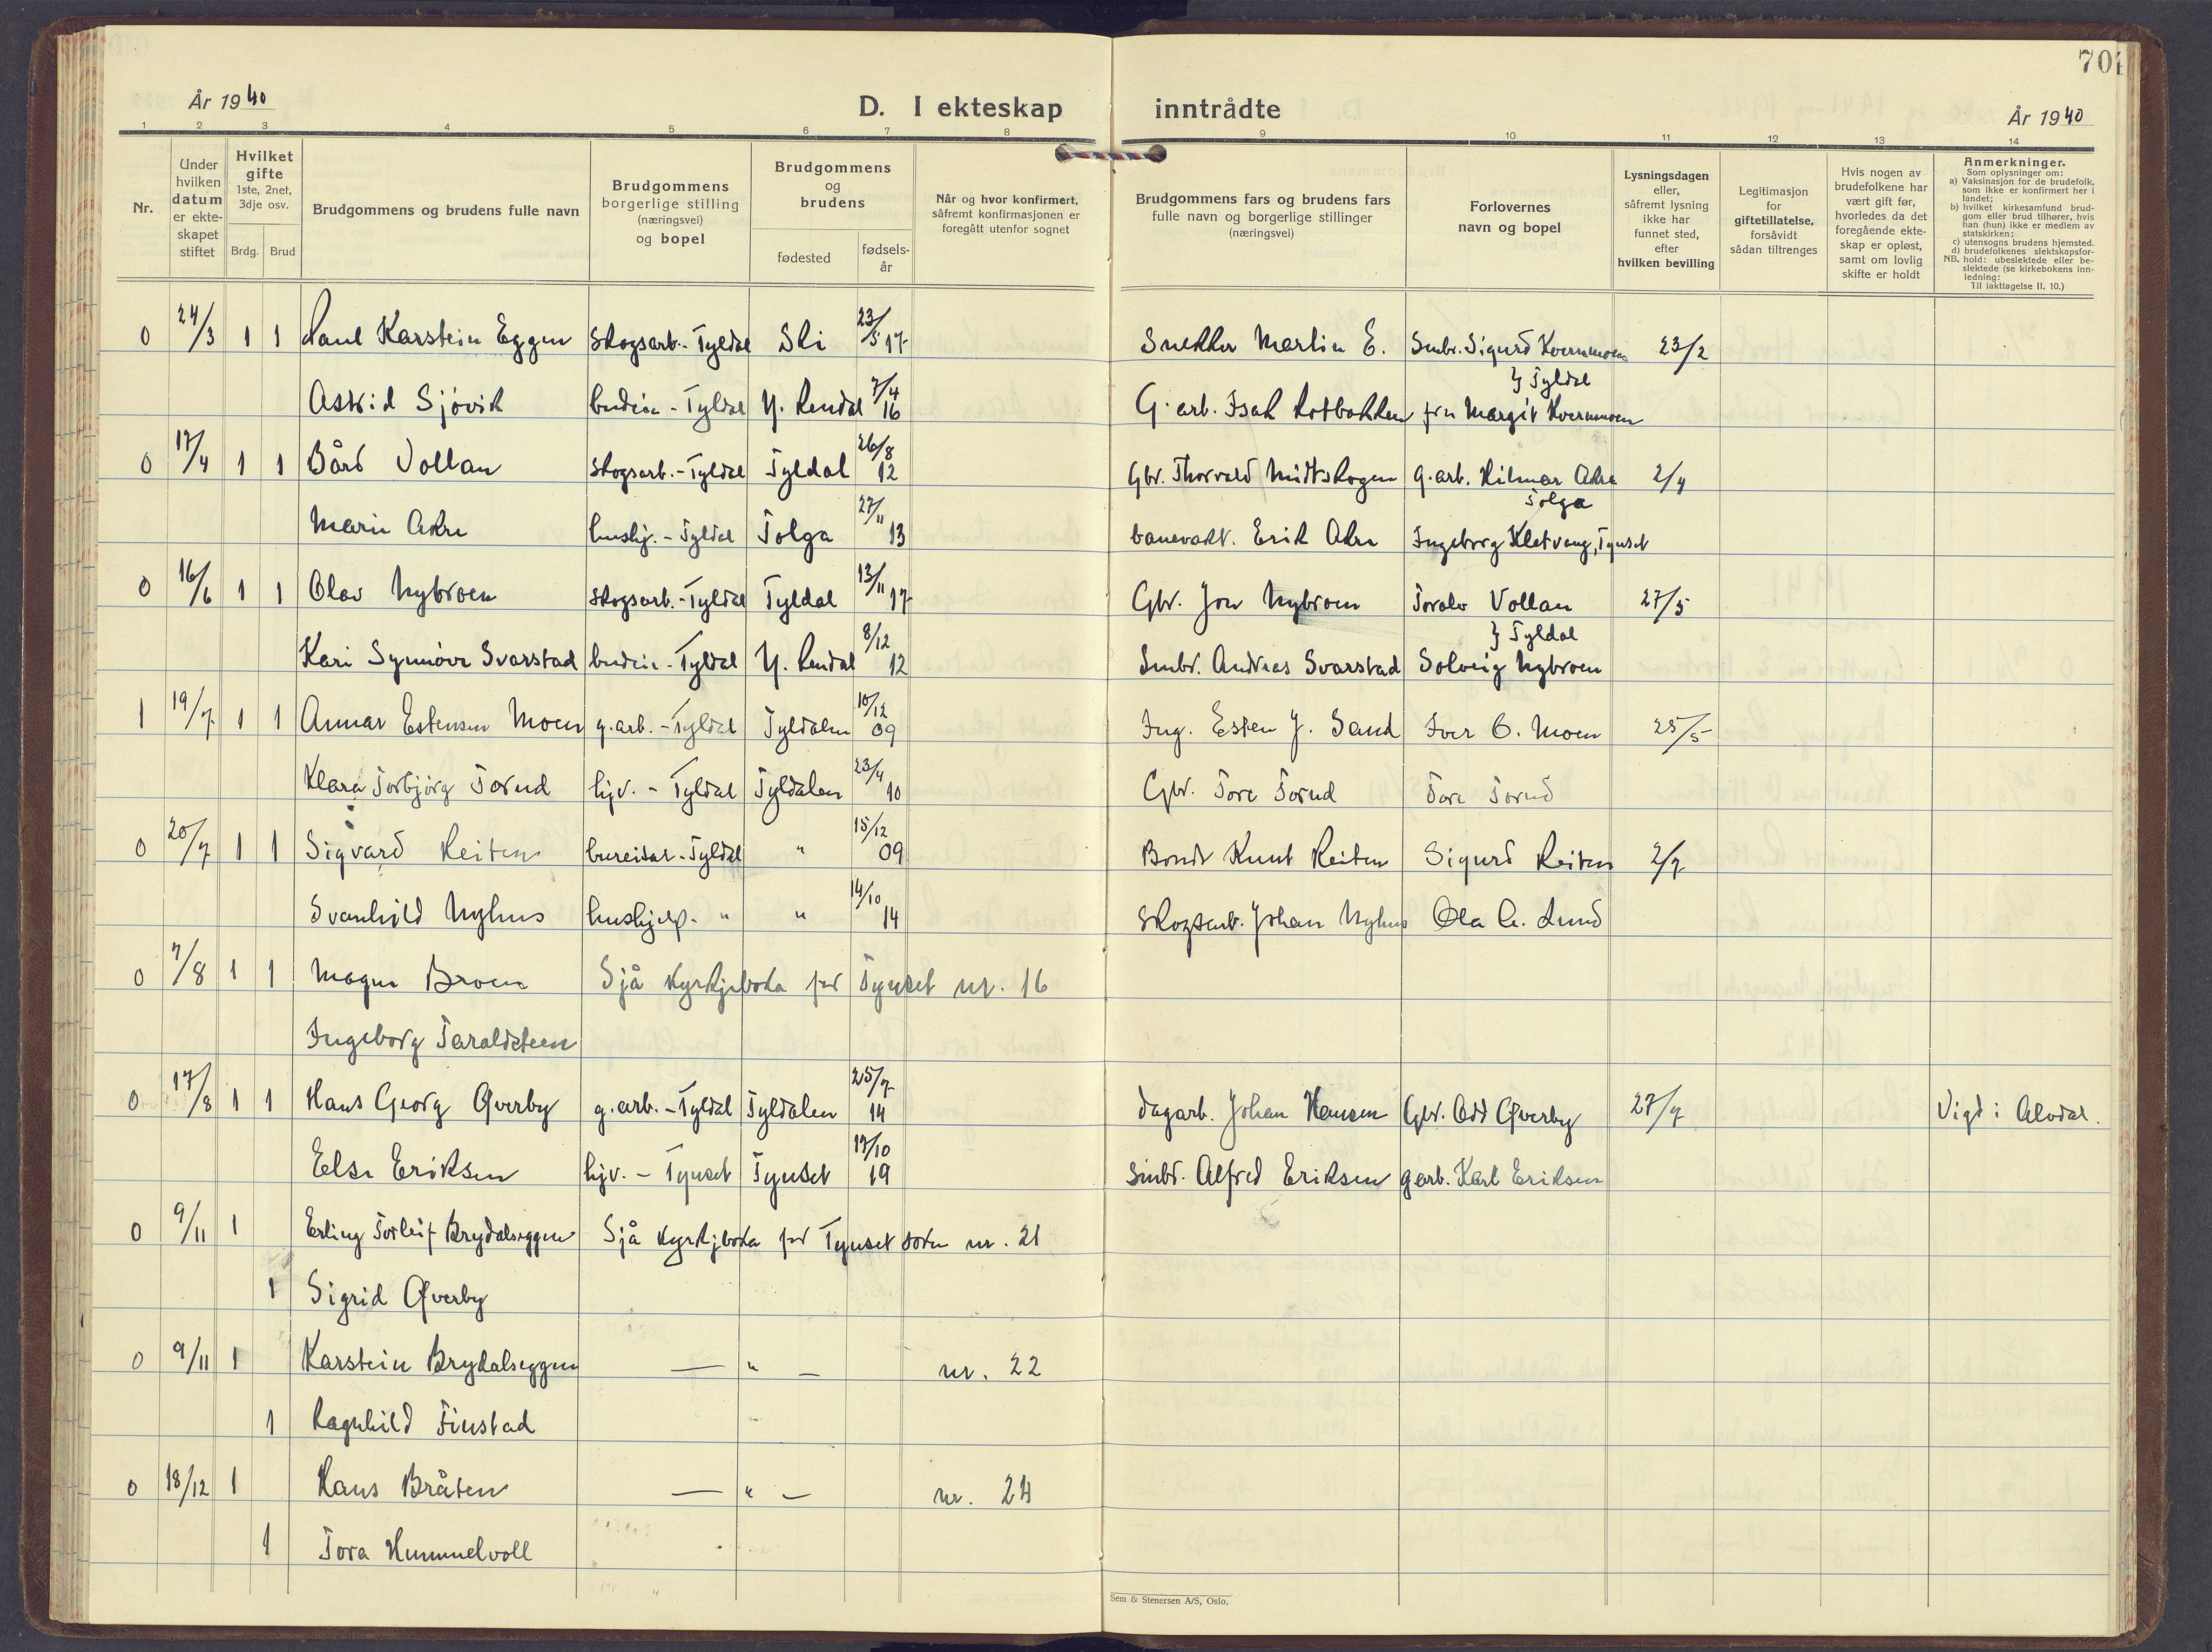 70
År 1940
D. I ekteskap inntrådte
År 1940
1 2 3 4 5 6 7 8 9 10 11 12 13 14
Nr.
Under hvilken datum er ekteskapet stiftet
Hvilket gifte
1ste, 2net, 3dje osv.
Brdg. Brud
Brudgommens og brudens fulle navn
Brudgommens borgerlige stilling (næringsvei) og bopel
Brudgommens og brudens
fødested
fødselsår
Når og hvor konfirmert, såfremt konfirmasjonen er foregått utenfor sognet
Brudgommens fars og brudens fars fulle navn og borgerlige stillinger (næringsvei)
Forlovernes navn og bopel
Lysningsdagen eller, såfremt lysning ikke har funnet sted, efter hvilken bevilling
Legitimasjon for giftetillatelse, forsåvidt sådan tiltrenges
Hvis nogen av brudefolkene har vært gift før, hvorledes da det foregående ekteskap er opløst, samt om lovlig skifte er holdt
Anmerkninger.
Som oplysninger om:
a) Vaksinasjon for de brudefolk, som ikke er konfirmert her i landet;
b) hvilket kirkesamfund brudgom eller brud tilhører, hvis han (hun) ikke er medlem av statskirken;
c) utensogns brudens hjemsted.
d) brudefolkenes slektskapsforhold: ubeslektede eller beslektede (se kirkebokens innledning:
NB.
Til iakttagelse II. 10.)
0 24/3 1 1 Paul Karstein Eggen Skogsarb. - Tyldal Ski 23/5 17 Snekker Martin E. Smbr. Sigurd Kvernmoen 23/2
} Tyldal
Astrid Sjövik budeie - Tyldal Y. Rendal 7/4 16 G. arb. Isak Rotbakken fru Margit Kvernmoen
0 17/4 1 1 Bård Vollan Skogsarb. - Tyldal Tyldal 26/8 12 Gbr. Thorvald Midtskogen g. arb. Hilmar Akre 2/4
Tolga
Marie Akre hushj. - Tyldal Tolga 27/11 13 banevakt. Erik Akre Ingeborg Kletvang, Tynset
0 16/6 1 1 Olav Nybroen skogsarb. - Tyldal Tyldal 13/11 17 Gbr. Jon Nybroen Toralv Vollan 27/5
} Tyldal
Kari Synnöve Svarstad budeie - Tyldal Y. Rendal 8/12 12 Smbr. Andreas Svarstad Solveig Nybroen
1 19/7 1 1 Annar Estensen Moen g. arb. - Tyldal Tyldalen 10/12 09 Ing. Esten J. Sand Iver O. Moen 25/5
Klara Torbjörg Torud hjv. - Tyldal Tyldalen 23/4 10 Gbr. Tore Torud Tore Torud
0 20/7 1 1 Sigvard Reiten bureisar - Tyldal " 15/12 09 Bonde Knut Reiten Sigurd Reiten 2/7
Svanhild Nyhus hushjelp - " " 14/10 14 Skogsarb. Johan Nyhus Ola A. Lund
0 7/8 1 1 Magne Broen Sjå kyrkjeboka for Tynset nr. 16
Ingeborg Taraldsteen
0 17/8 1 1 Hans Georg Överby g. arb. - Tyldal Tyldalen 25/7 14 dagarb. Johan Hansen Gbr. Odd Överby 27/7 Vigd i Alvdal.
Else Eriksen hjv. - Tynset Tynset 17/10 19 Smbr. Alfred Eriksen garb. Karl Eriksen
0 9/11 1 Erling Torleif Brydalseggen Sjå kyrkjeboka for Tynset sokn nr. 21
1 Sigrid Överby
0 9/11 1 Karstein Brydalseggen — " — nr. 22
1 Ragnhild Finstad
0 18/12 1 Hans Bråten — " — nr. 24
1 Tora Hummelvoll
Sem & Stenersen A/S, Oslo.